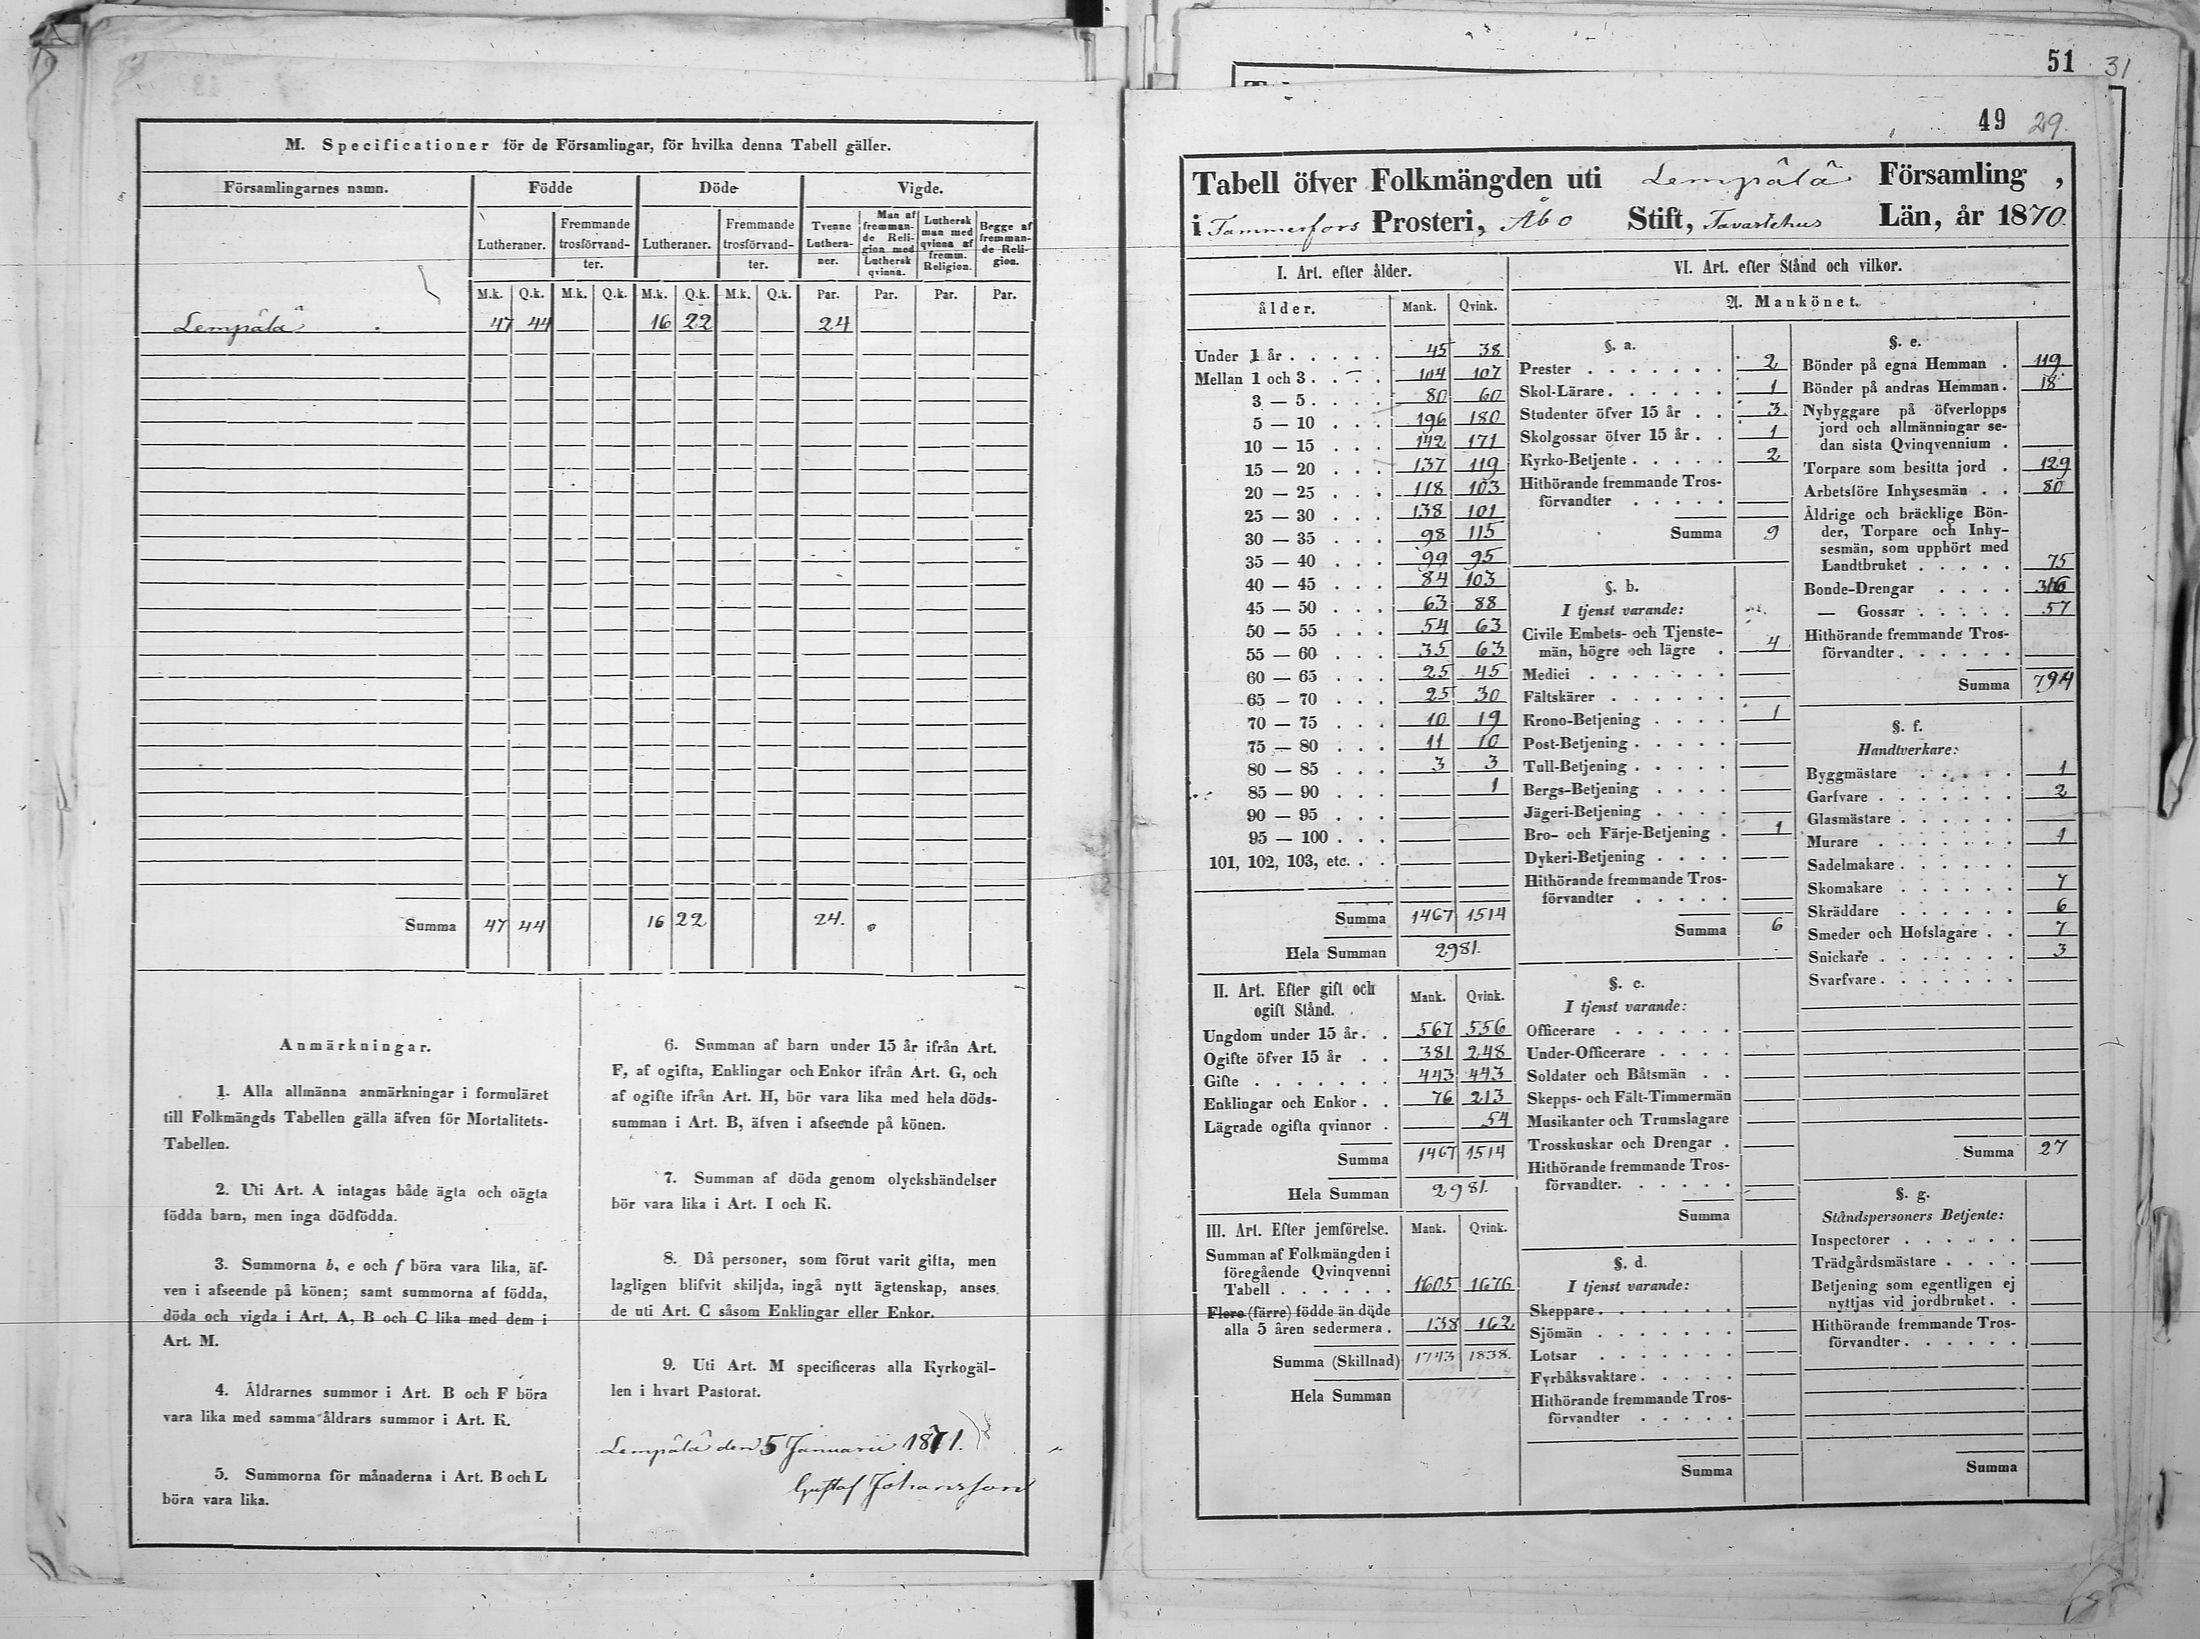 M. Specificationer för de Församlingar, för hvilka denna Tabell gäller.
Församlingarnes namn. Födde Döde Vigde.
Lutheraner. Fremmande trosförvandter. Lutheraner. Fremmande trosförvandter. Tvenne Lutheraner. Man af fremmande Religion med Luthersk qvinna. Luthersk man med qvinna af fremm. Religion. Begge af fremmande Religion.
M.k. Q.k. M.k. Q.k. M.k. Q.k. M.k. Q.k. Par. Par. Par. Par.
Lempälä 47 44 16 22 24
Summa 47 44 16 22 24.
Anmärkningar.
1. Alla allmänna anmärkningar i formuläret
till Folkmängds Tabellen gälla äfven för Mortalitets-
Tabellen.
2. Uti Art. A intagas både ägta och oägta
födda barn, men inga dödfödda.
3. Summorna b, e och f böra vara lika, äf-
ven i afseende på könen; samt summorna af födda,
döda och vigda i Art. A, B och C lika med dem i
Art. M.
4. Åldrarnes summor i Art. B och F böra
vara lika med samma åldrars summor i Art. K.
5. Summorna för månaderna i Art. B och L
böra vara lika.
6. Summan af barn under 15 år ifrån Art.
F, af ogifta, Enklingar och Enkor ifrån Art. G, och
af ogifte ifrån Art. H, bör vara lika med hela döds-
summan i Art. B, äfven i afseende på könen.
7. Summan af döda genom olyckshändelser
bör vara lika i Art. I och K.
8. Då personer, som förut varit gifta, men
lagligen blifvit skiljda, ingå nytt ägtenskap, anses
de uti Art. C såsom Enklingar eller Enkor.
9. Uti Art. M specificeras alla Kyrkogäl-
len i hvart Pastorat.
Lempälä den 5 Januarii 1871.
Gustaf Johansson
51 31.
49 29.
Tabell öfver Folkmängden uti Lempälä Församling,
i Tammerfors Prosteri, Åbo Stift, Tavastehus Län, år 1870.
I. Art. efter ålder.
ålder. Mank. Qvink.
Under 1 år . . . . . 45 38
Mellan 1 och 3 . . . . 104 107
3 — 5 . . . . 80 60
5 — 10 . . . 196 180
10 — 15 . . . 142 171
15 — 20 . . . 137 119
20 — 25 . . . 118 103
25 — 30 . . . 138 101
30 — 35 . . . 98 115
35 — 40 . . . 99 95
40 — 45 . . . 84 103
45 — 50 . . . 63 88
50 — 55 . . . 54 63
55 — 60 . . . 35 63
60 — 65 . . . 25 45
65 — 70 . . . 25 30
70 — 75 . . . 10 19
75 — 80 . . . 11 10
80 — 85 . . . 3 3
85 — 90 . . . 1
90 — 95 . . .
95 — 100 . . .
101, 102, 103, etc. . .
Summa 1467 1514
Hela Summan 2981.
II. Art. Efter gift och ogift Stånd. Mank. Qvink.
Ungdom under 15 år . . 567 556
Ogifte öfver 15 år . . 381 248
Gifte . . . . . . . 443 443
Enklingar och Enkor . . 76 213
Lägrade ogifta qvinnor . 54
Summa 1467 1514
Hela Summan 2981.
III. Art. Efter jemförelse. Mank. Qvink.
Summan af Folkmängden i
föregående Qvinqvenni
Tabell . . . . . . 1605 1676
Flere (färre) födde än döde
alla 5 åren sedermera . 138 162
Summa (Skillnad) 1743 1838.
Hela Summan
VI. Art. efter Stånd och vilkor.
A. Mankönet.
§. a.
Prester . . . . . . . 2
Skol-Lärare . . . . . . 1
Studenter öfver 15 år . . 3
Skolgossar öfver 15 år . . 1
Kyrko-Betjente . . . . . 2
Hithörande fremmande Tros-
förvandter . . . . .
Summa 9
§. b.
I tjenst varande:
Civile Embets- och Tjenste-
män, högre och lägre . 4
Medici . . . . . . .
Fältskärer . . . . . .
Krono-Betjening . . . . 1
Post-Betjening . . . . .
Tull-Betjening . . . . .
Bergs-Betjening . . . .
Jägeri-Betjening . . . .
Bro- och Färje-Betjening . 1
Dykeri-Betjening . . . .
Hithörande fremmande Tros-
förvandter . . . . .
Summa 6
§. c.
I tjenst varande:
Officerare . . . . . .
Under-Officerare . . . .
Soldater och Båtsmän . .
Skepps- och Fält-Timmermän
Musikanter och Trumslagare
Trosskuskar och Drengar .
Hithörande fremmande Tros-
förvandter. . . . . .
Summa
§. d.
I tjenst varande:
Skeppare . . . . . . .
Sjömän . . . . . . .
Lotsar . . . . . . .
Fyrbåksvaktare . . . . .
Hithörande fremmande Tros-
förvandter . . . . .
Summa
§. e.
Bönder på egna Hemman . 119
Bönder på andras Hemman . 18
Nybyggare på öfverlopps
jord och allmänningar se-
dan sista Qvinqvennium .
Torpare som besitta jord . 129
Arbetsföre Inhysesmän . . 80
Åldrige och bräcklige Bön-
der, Torpare och Inhy-
sesmän, som upphört med
Landtbruket . . . . . 75
Bonde-Drengar . . . . 316
— Gossar . . . . . 57
Hithörande fremmande Tros-
förvandter . . . . . .
Summa 794
§. f.
Handtverkare:
Byggmästare . . . . . 1
Garfvare . . . . . . . 2
Glasmästare . . . . . .
Murare . . . . . . 1
Sadelmakare . . . . . .
Skomakare . . . . . . 7
Skräddare . . . . . . 6
Smeder och Hofslagare . . 7
Snickare . . . . . . . 3
Svarfvare . . . . . . .
Summa 27
§. g.
Ståndspersoners Betjente:
Inspectorer . . . . . .
Trädgårdsmästare . . . .
Betjening som egentligen ej
nyttjas vid jordbruket . .
Hithörande fremmande Tros-
förvandter . . . . . .
Summa